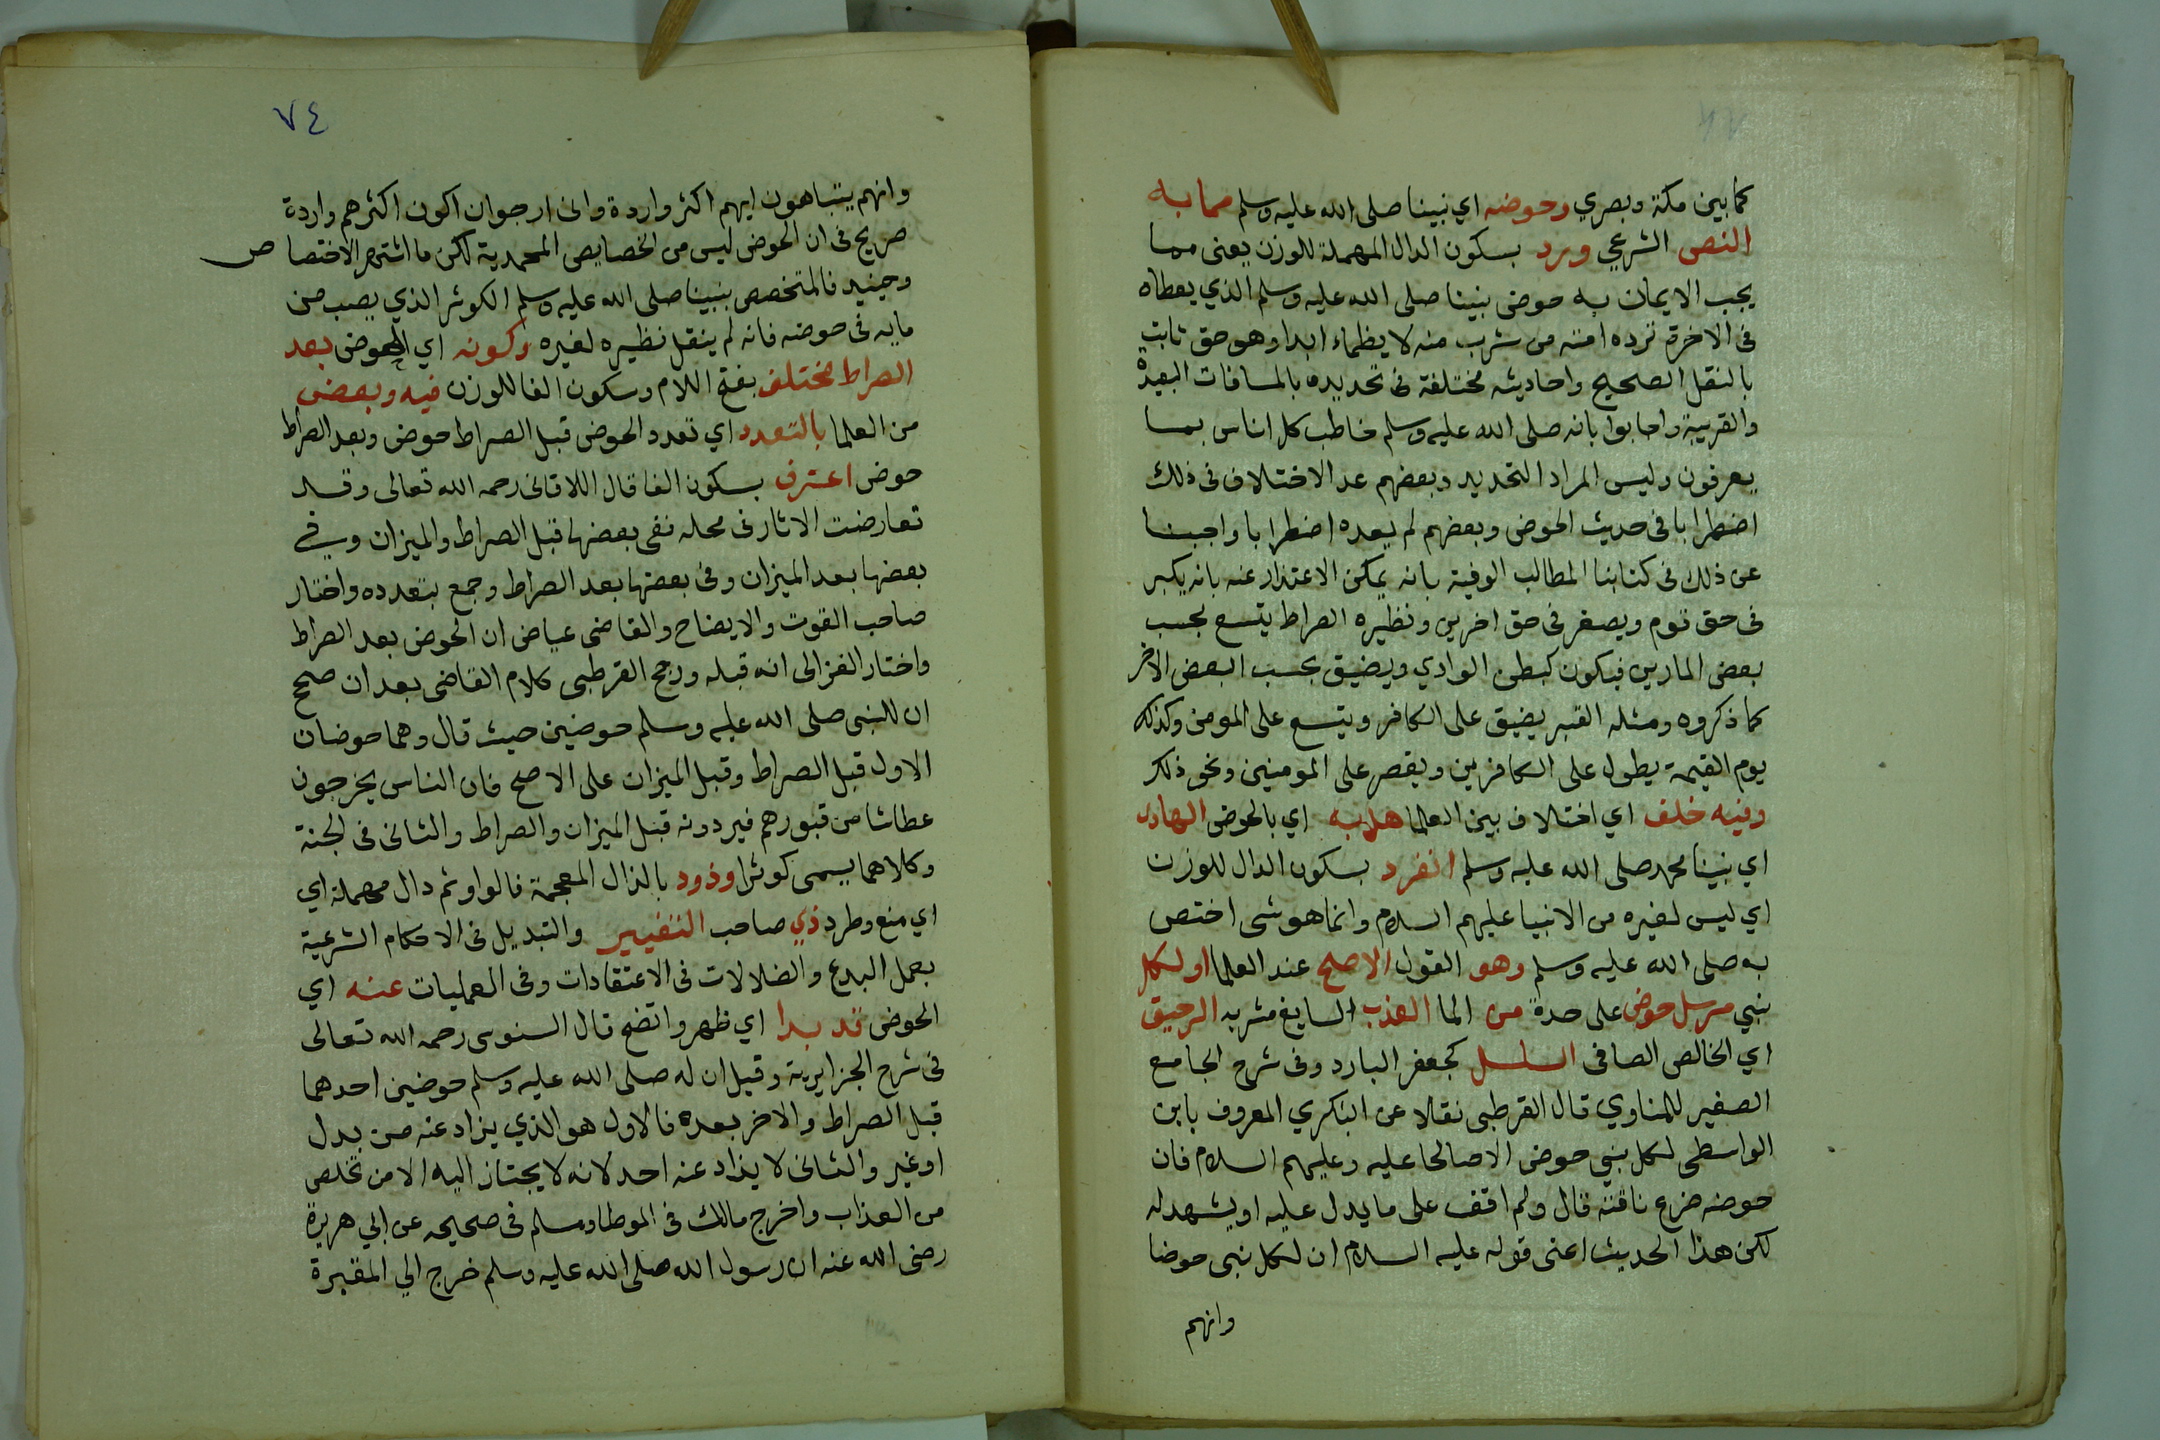 كما بين مكة وبصري وحوضه اي نبينا صلى الله عليه وسلم مما به
النص الشرعي ورد بسكون الدال المهملة للوزن يعنى مما
يجب الايمان به حوض نبينا صلى الله عليه وسلم الذي يعطاه
فى الاخرة ترده امته من شرب منه لا يظماء ابدا وهو حق ثابت
بالنقل الصحيح واحاديثه مختلفة فى تحديده بالمسافات البعيدة
والقريبة واجابوا بانه صلى الله عليه وسلم خاطب كل اناس بما
يعرفون وليس المراد التحديد وبعضهم عد الاختلاف فى ذلك
اضطرابا فى حديث الحوض وبعضهم لم يعده اضطرابا واجبنا
عن ذلك فى كتابنا المطالب الوفية بانه يمكن الاعتذار عنه بانه يكبر
فى حق قوم ويصغر فى حق اخرين ونظيره الصراط يتسع بحسب
بعض المارين فيكون كبطن الوادي ويضيق بحسب البعض الاخر
كما ذكروه ومثله القبر يضيق على الكافر ويتسع على المومن وكذلك
يوم القيمة يطول على الكافرين ويقصر على المومنين ونحو ذلك
وفيه خلف اي اختلاف بين العلما هل به اي بالحوض الهادى
اي نبينا محمد صلى الله عليه وسلم انفرد بسكون الدال للوزن
اي ليس لغيره من الانبيا عليهم السلام وانما هو شى اختص
به صلى الله عليه وسلم وهو القول الاصلح عند العلما او لكل
نبي مرسل حوض على حدة من الما العذب السايغ مشربه الرحيق
اي الخالص الصافى السلسل كجعفر البارد وفى شرح الجامع
الصغير للمناوي قال القرطبى نقلا عن البكري المعروف بابن
الواسطى لكل نبي حوض الا صالحا عليه وعليهم السلام فان
حوضه ضرع ناقته قال ولم اقف على ما يدل عليه او يشهد له
لكن هذا الحديث اعنى قوله عليه السلام ان لكل نبى حوضا
وانهم
٧٤
وانهم يتباهون ايهم اكثر واردة وانى ارجوان اكون اكثرهم واردة
صريح فى ان الحوض ليس من الخصايص المحمدية لكن ما اشتهر الاختصاص
وحينيد فالمتخصص بنبينا صلى الله عليه وسلم الكوثر الذي يصب من
مايه فى حوضه فانه لم ينقل نظيره لغيره وكونه اي الحوض بعد
الصراط مختلف بفتح اللام وسكون الفا للوزن فيه وبعض
من العلما بالتعدد اي تعدد الحوض قبل الصراط حوض وبعد الصراط
حوض اعترف بسكون الفا قال اللاقانى رحمه الله تعالى وقد
تعارضت الاثار فى محله نفى بعضها قبل الصراط والميزان وفي
بعضها بعد الميزان وفى بعضها بعد الصراط وجمع بتعدده واختار
صاحب القوت والايضاح والقاضى عياض ان الحوض بعد الصراط
واختار الغزالى انه قبله ورجح القرطبى كلام القاضى بعد ان صحح
ان للنبى صلى الله عليه وسلم حوضين حيث قال وهما حوضان
الاول قبل الصراط وقبل الميزان على الاصح فان الناس يخرجون
عطاشا من قبورهم فيردونه قبل الميزان والصراط والثانى فى الجنة
وكلاهما يسمى كوثرا وذود بالذال المعجمة فالواو ثم دال مهملة اي
اي منع وطرد ذي صاحب التغيير والتبديل فى الاحكام الشرعية
بعمل البدع والضلالات فى الاعتقادات وفى العمليات عنه اي
الحوض قد بدا اي ظهر واتضح قال السنوسى رحمه الله تعالى
فى شرح الجزايرية وقيل ان له صلى الله عليه وسلم حوضين احدهما
قبل الصراط والاخر بعده فالاول هو الذي يزاد عنه من بدل
او غير والثانى لا يذاد عنه احد لانه لا يجتاز اليه الا من تخلص
من العذاب واخرج مالك فى الموطا ومسلم فى صحيحه عن ابي هريرة
رضى الله عنه ان رسول الله صلى الله عليه وسلم خرج الي المقبرة